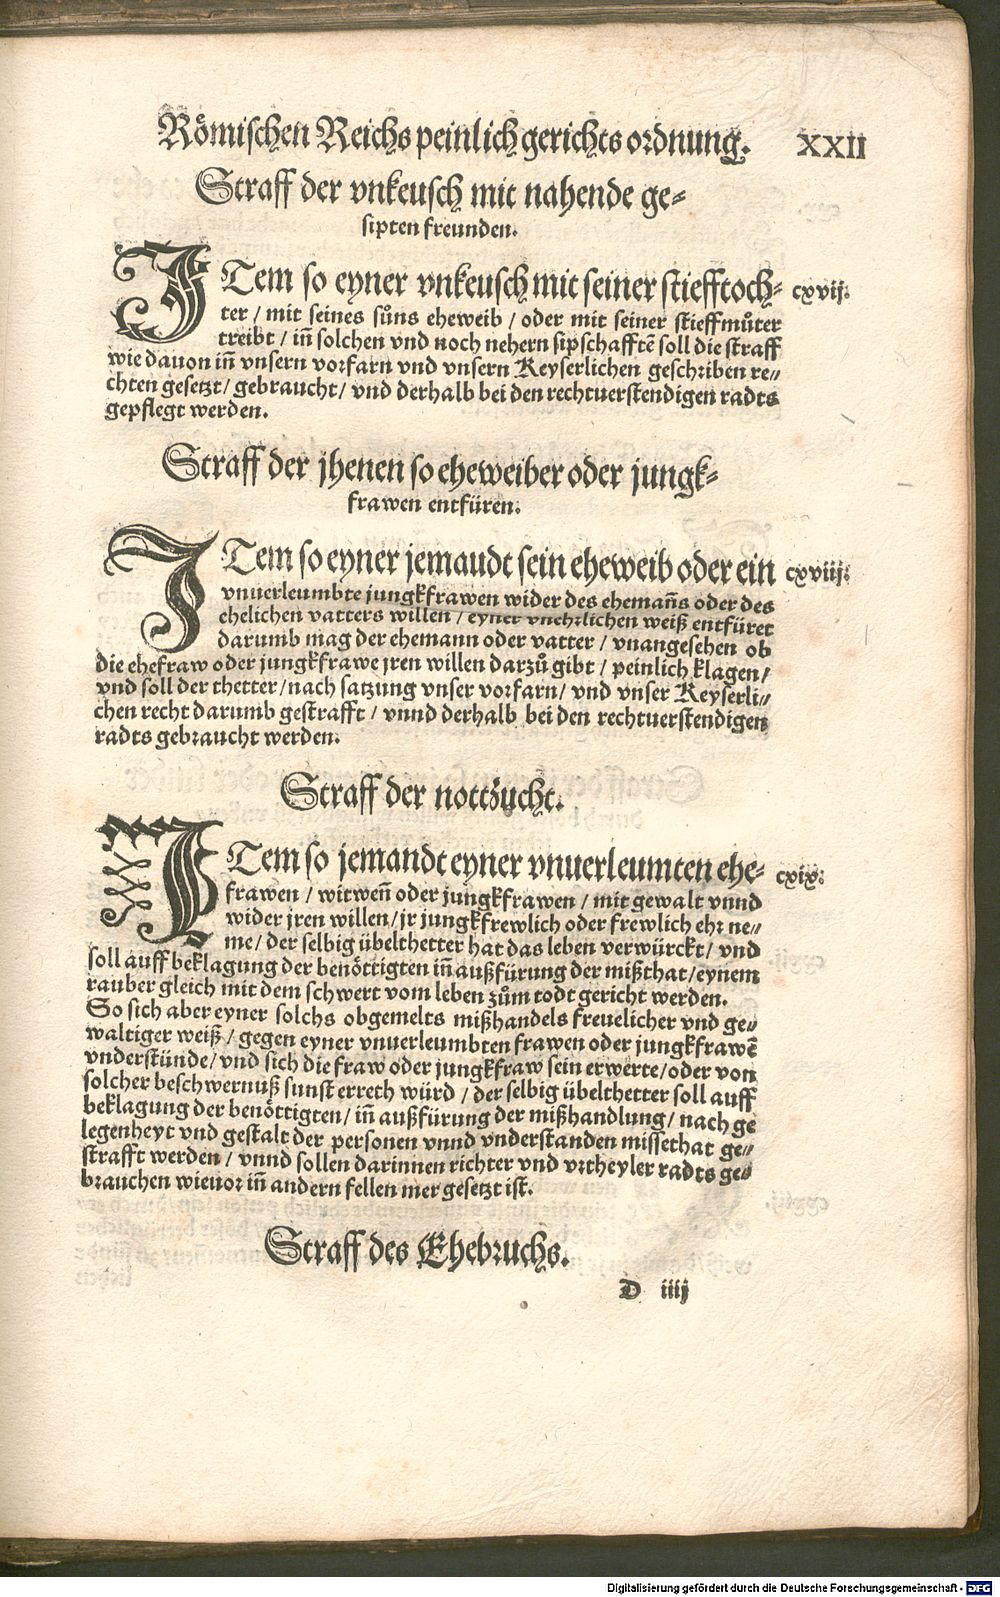 Römischen Reichs peinlich gerichts ordnung. XXII
Straff der vnkeusch mit nahende ge-
sipten freunden.
ITem so eyner vnkeusch mit seiner stiefftoch- cxvij.
ter / mit seines sůns eheweib / oder mit seiner stieffmůter
treibt / inn̄ solchen vnd noch nehern sipschafftē soll die straff
wie dauon inn̄ vnsern vorfarn vnd vnsern Keyserlichen geschriben re-
chten gesetzt / gebraucht / vnd derhalb bei den rechtuerstendigen radts
gepflegt werden.
Straff der jhenen so eheweiber oder jungk-
frawen entfüren.
ITem so eyner jemaudt sein eheweib oder ein cxviij.
vnuerleumbte jungkfrawen wider des ehemañs oder des
ehelichen vatters willen / eyner vnehrlichen weiß entfüret
darumb mag der ehemann oder vatter / vnangesehen ob
die ehefraw oder jungkfrawe jren willen darzů gibt / peinlich klagen /
vnd soll der thetter / nach satzung vnser vorfarn / vnd vnser Keyserli-
chen recht darumb gestrafft / vnnd derhalb bei den rechtuerstendigen
radts gebraucht werden.
Straff der nottzucht.
ITem so jemandt eyner vnuerleumten ehe- cxix.
frawen / witweñ oder jungkfrawen / mit gewalt vnnd
wider jren willen / jr jungkfrewlich oder frewlich ehr ne-
me / der selbig übelthetter hat das leben verwürckt / vnd
soll auff beklagung der benöttigten inn̄ außfürung der mißthat / eynem
rauber gleich mit dem schwert vom leben zům todt gericht werden.
So sich aber eyner solchs obgemelts mißhandels freuelicher vnd ge-
waltiger weiß / gegen eyner vnuerleumbten frawen oder jungkfrawē
vnderstünde / vnd sich die fraw oder jungkfraw sein erwerte / oder von
solcher beschwernuß sunst erreth würd / der selbig übelthetter soll auff
beklagung der benöttigten / inn̄ außfürung der mißhandlung / nach ge
legenheyt vnd gestalt der personen vnnd vnderstanden missethat ge-
strafft werden / vnnd sollen darinnen richter vnd vrtheyler radts ge-
brauchen wieuor inn̄ andern fellen mer gesetzt ist.
Straff des Ehebruchs.
D iiij
Digitalisierung gefördert durch die Deutsche Forschungsgemeinschaft - DFG